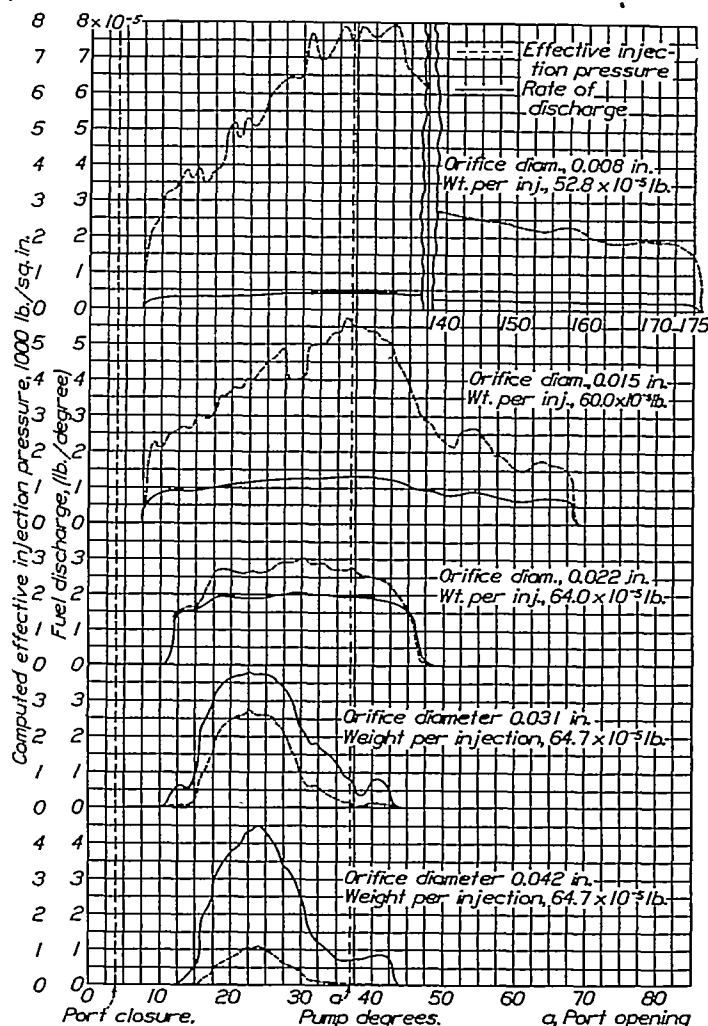 8 8×10⁻⁵
7 7
6 6
5 5
4 4
3 3
2 2
1 1
0 0
Effective injec-
tion pressure
Rate of
discharge
Orifice diam., 0.008 in.
Wt. per inj., 52.8 x 10⁻⁵ lb.
140 150 160 170 175
5 5
4 4
3 3
2 2
1 1
0 0
Orifice diam., 0.015 in.
Wt. per inj., 60.0x10⁻⁵ lb.
3 3
2 2
1 1
0 0
Orifice diam., 0.022 in.
Wt. per inj., 64.0 x 10⁻⁵ lb.
3 3
2 2
1 1
0 0
Orifice diameter 0.031 in.
Weight per injection, 64.7 x 10⁻⁵ lb.
4 4
3 3
2 2
1 1
0 0
Orifice diameter 0.042 in.
Weight per injection, 64.7 x 10⁻⁵ lb.
Computed effective injection pressure, 1000 lb./sq. in.
Fuel discharge, (lb./degree)
0 10 20 30 a 40 50 60 70 80
Port closure. Pump degrees. a, Port opening